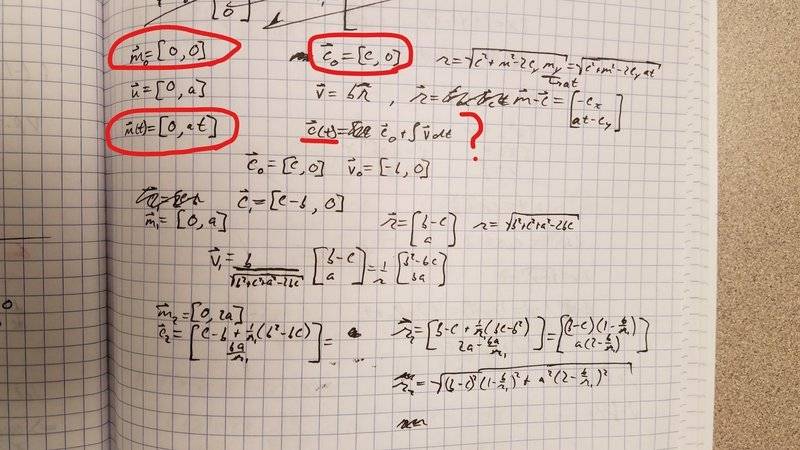 m⃗₀=[0,0] c⃗₀=[c,0] r=√(c²+m²-2c_y m_y)=√(c²+m²-2c_y at)
u⃗=[0,a] v⃗=br⃗, r⃗= m⃗-c⃗=[-c_x
at-c_y]
m⃗(t)=[0,at] c⃗(t)= c⃗₀+∫v⃗dt ?
c⃗₀=[c,0] v⃗₀=[-b,0]
c⃗₁=[c-b,0]
m⃗₁=[0,a] r⃗=[b-c
a] r=√(b²+c²+a²-2bc)
v⃗₁=b/√(b²+c²+a²-2bc) [b-c
a]=1/r [b²-bc
ba]
m⃗₂=[0,2a]
c⃗₂=[c-b+1/r₁(b²-bc)
ba/r₁]= r⃗₂=[b-c+1/r₁(bc-b²)
2a-ba/r₁]=[(b-c)(1-b/r₁)
a(2-b/r₁)]
r₂=√((b-c)²(1-b/r₁)²+a²(2-b/r₁)²)